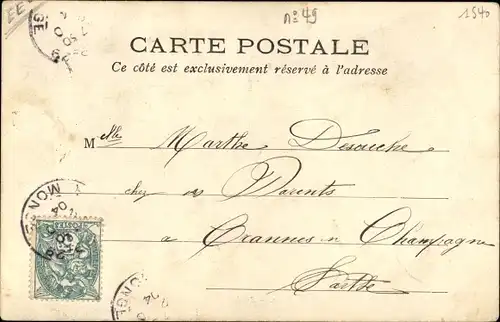 EE
N° 49
1540
CARTE POSTALE
Ce côté est exclusivement réservé à l'adresse
Melle Marthe
chez ses Parents
à Crannes en Champagne
Sarthe
MON
04
ONGE
GE